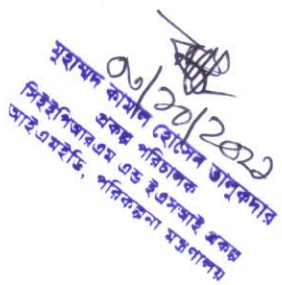 মুহাম্মদ কামাল হোসেন তালুকদার
প্রকল্প পরিচালক
সিইইপিআরএম এন্ড ইএসআই প্রকল্প
আইএমইডি, পরিকল্পনা মন্ত্রণালয়